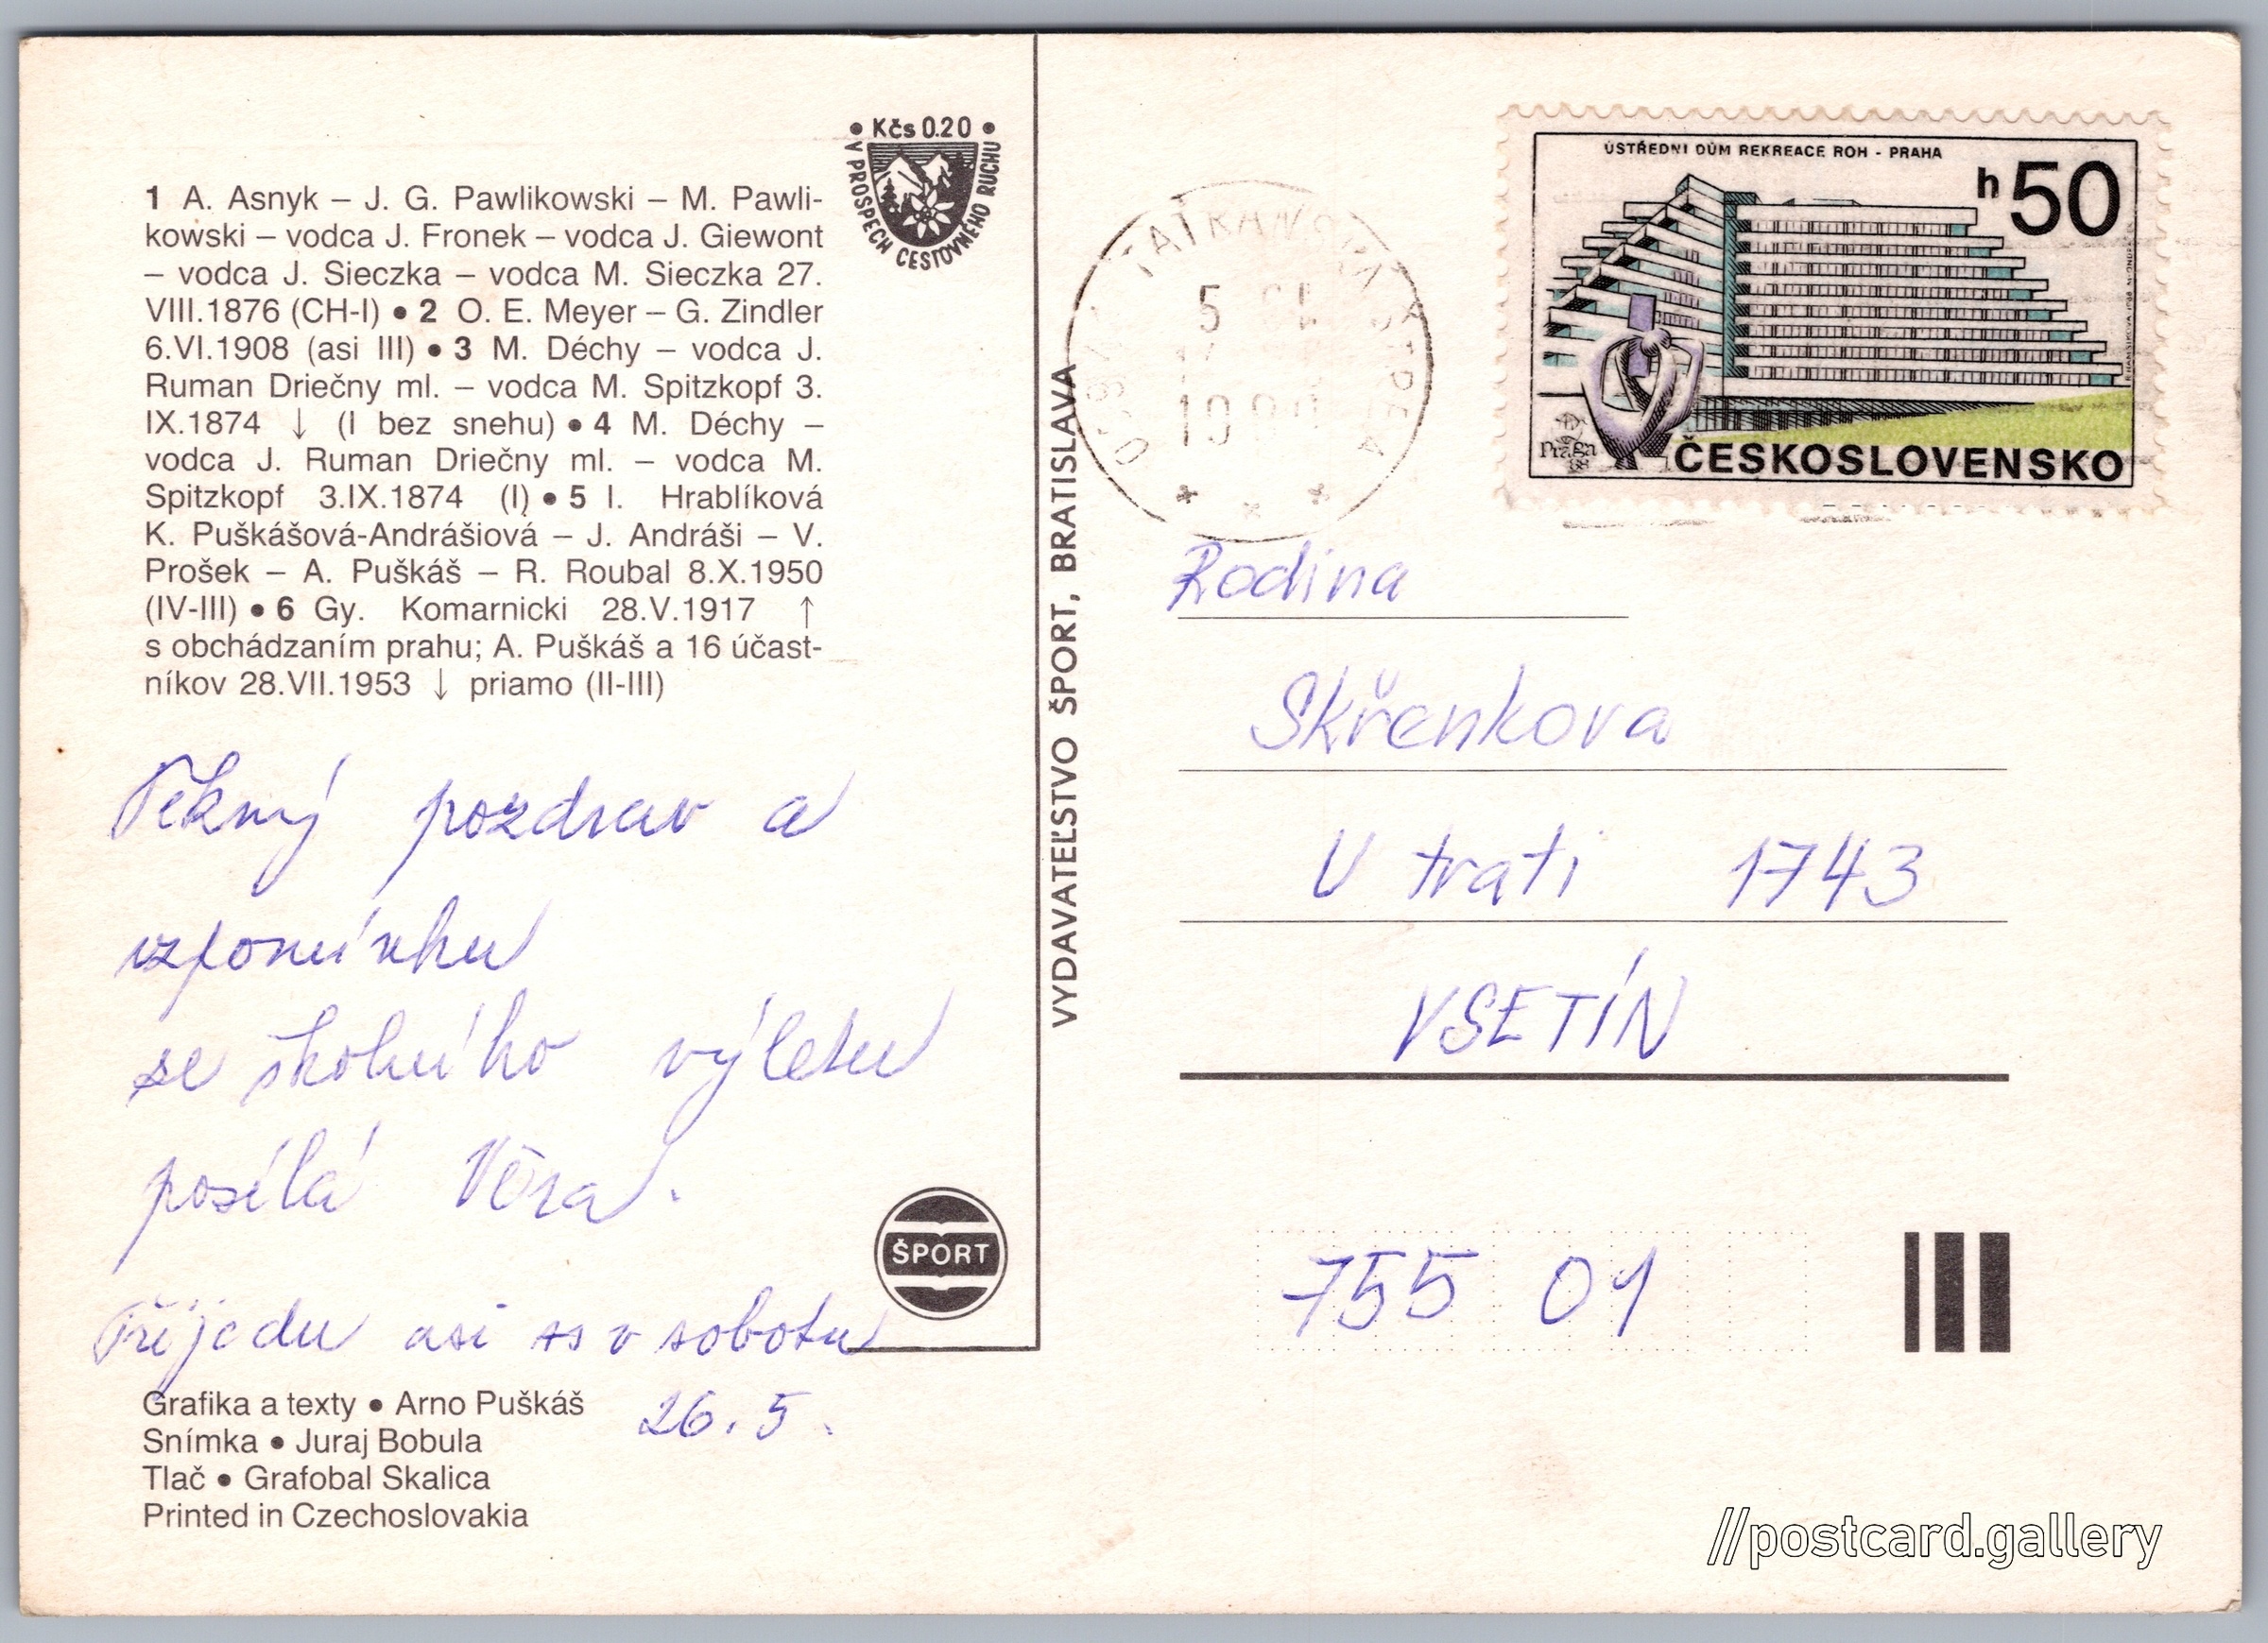 1 A. Asnyk – J. G. Pawlikowski – M. Pawli-
kowski – vodca J. Fronek – vodca J. Giewont
– vodca J. Sieczka – vodca M. Sieczka 27.
VIII.1876 (CH-I) ● 2 O. E. Meyer – G. Zindler
6.VI.1908 (asi III) ● 3 M. Déchy – vodca J.
Ruman Driečny ml. – vodca M. Spitzkopf 3.
IX.1874 ↓ (I bez snehu) ● 4 M. Déchy –
vodca J. Ruman Driečny ml. – vodca M.
Spitzkopf 3.IX.1874 (I) ● 5 I. Hrablíková
K. Puškášová-Andrášiová – J. Andráši – V.
Prošek – A. Puškáš – R. Roubal 8.X.1950
(IV-III) ● 6 Gy. Komarnicki 28.V.1917 ↑
s obchádzaním prahu; A. Puškáš a 16 účast-
níkov 28.VII.1953 ↓ priamo (II-III)
● Kčs 0.20 ●
V PROSPECH CESTOVNÉHO RUCHU
Pěkný pozdrav a
vzpomínku
se školního výletu
posílá Věra.
Přijedu asi v sobotu
26. 5.
ŠPORT
Grafika a texty ● Arno Puškáš
Snímka ● Juraj Bobula
Tlač ● Grafobal Skalica
Printed in Czechoslovakia
VYDAVATEĽSTVO ŠPORT, BRATISLAVA
ÚSTŘEDNÍ DŮM REKREACE ROH - PRAHA
h 50
Praga
88
ČESKOSLOVENSKO
Rodina
Skřenkova
U trati 1743
VSETÍN
755 01
//postcard.gallery